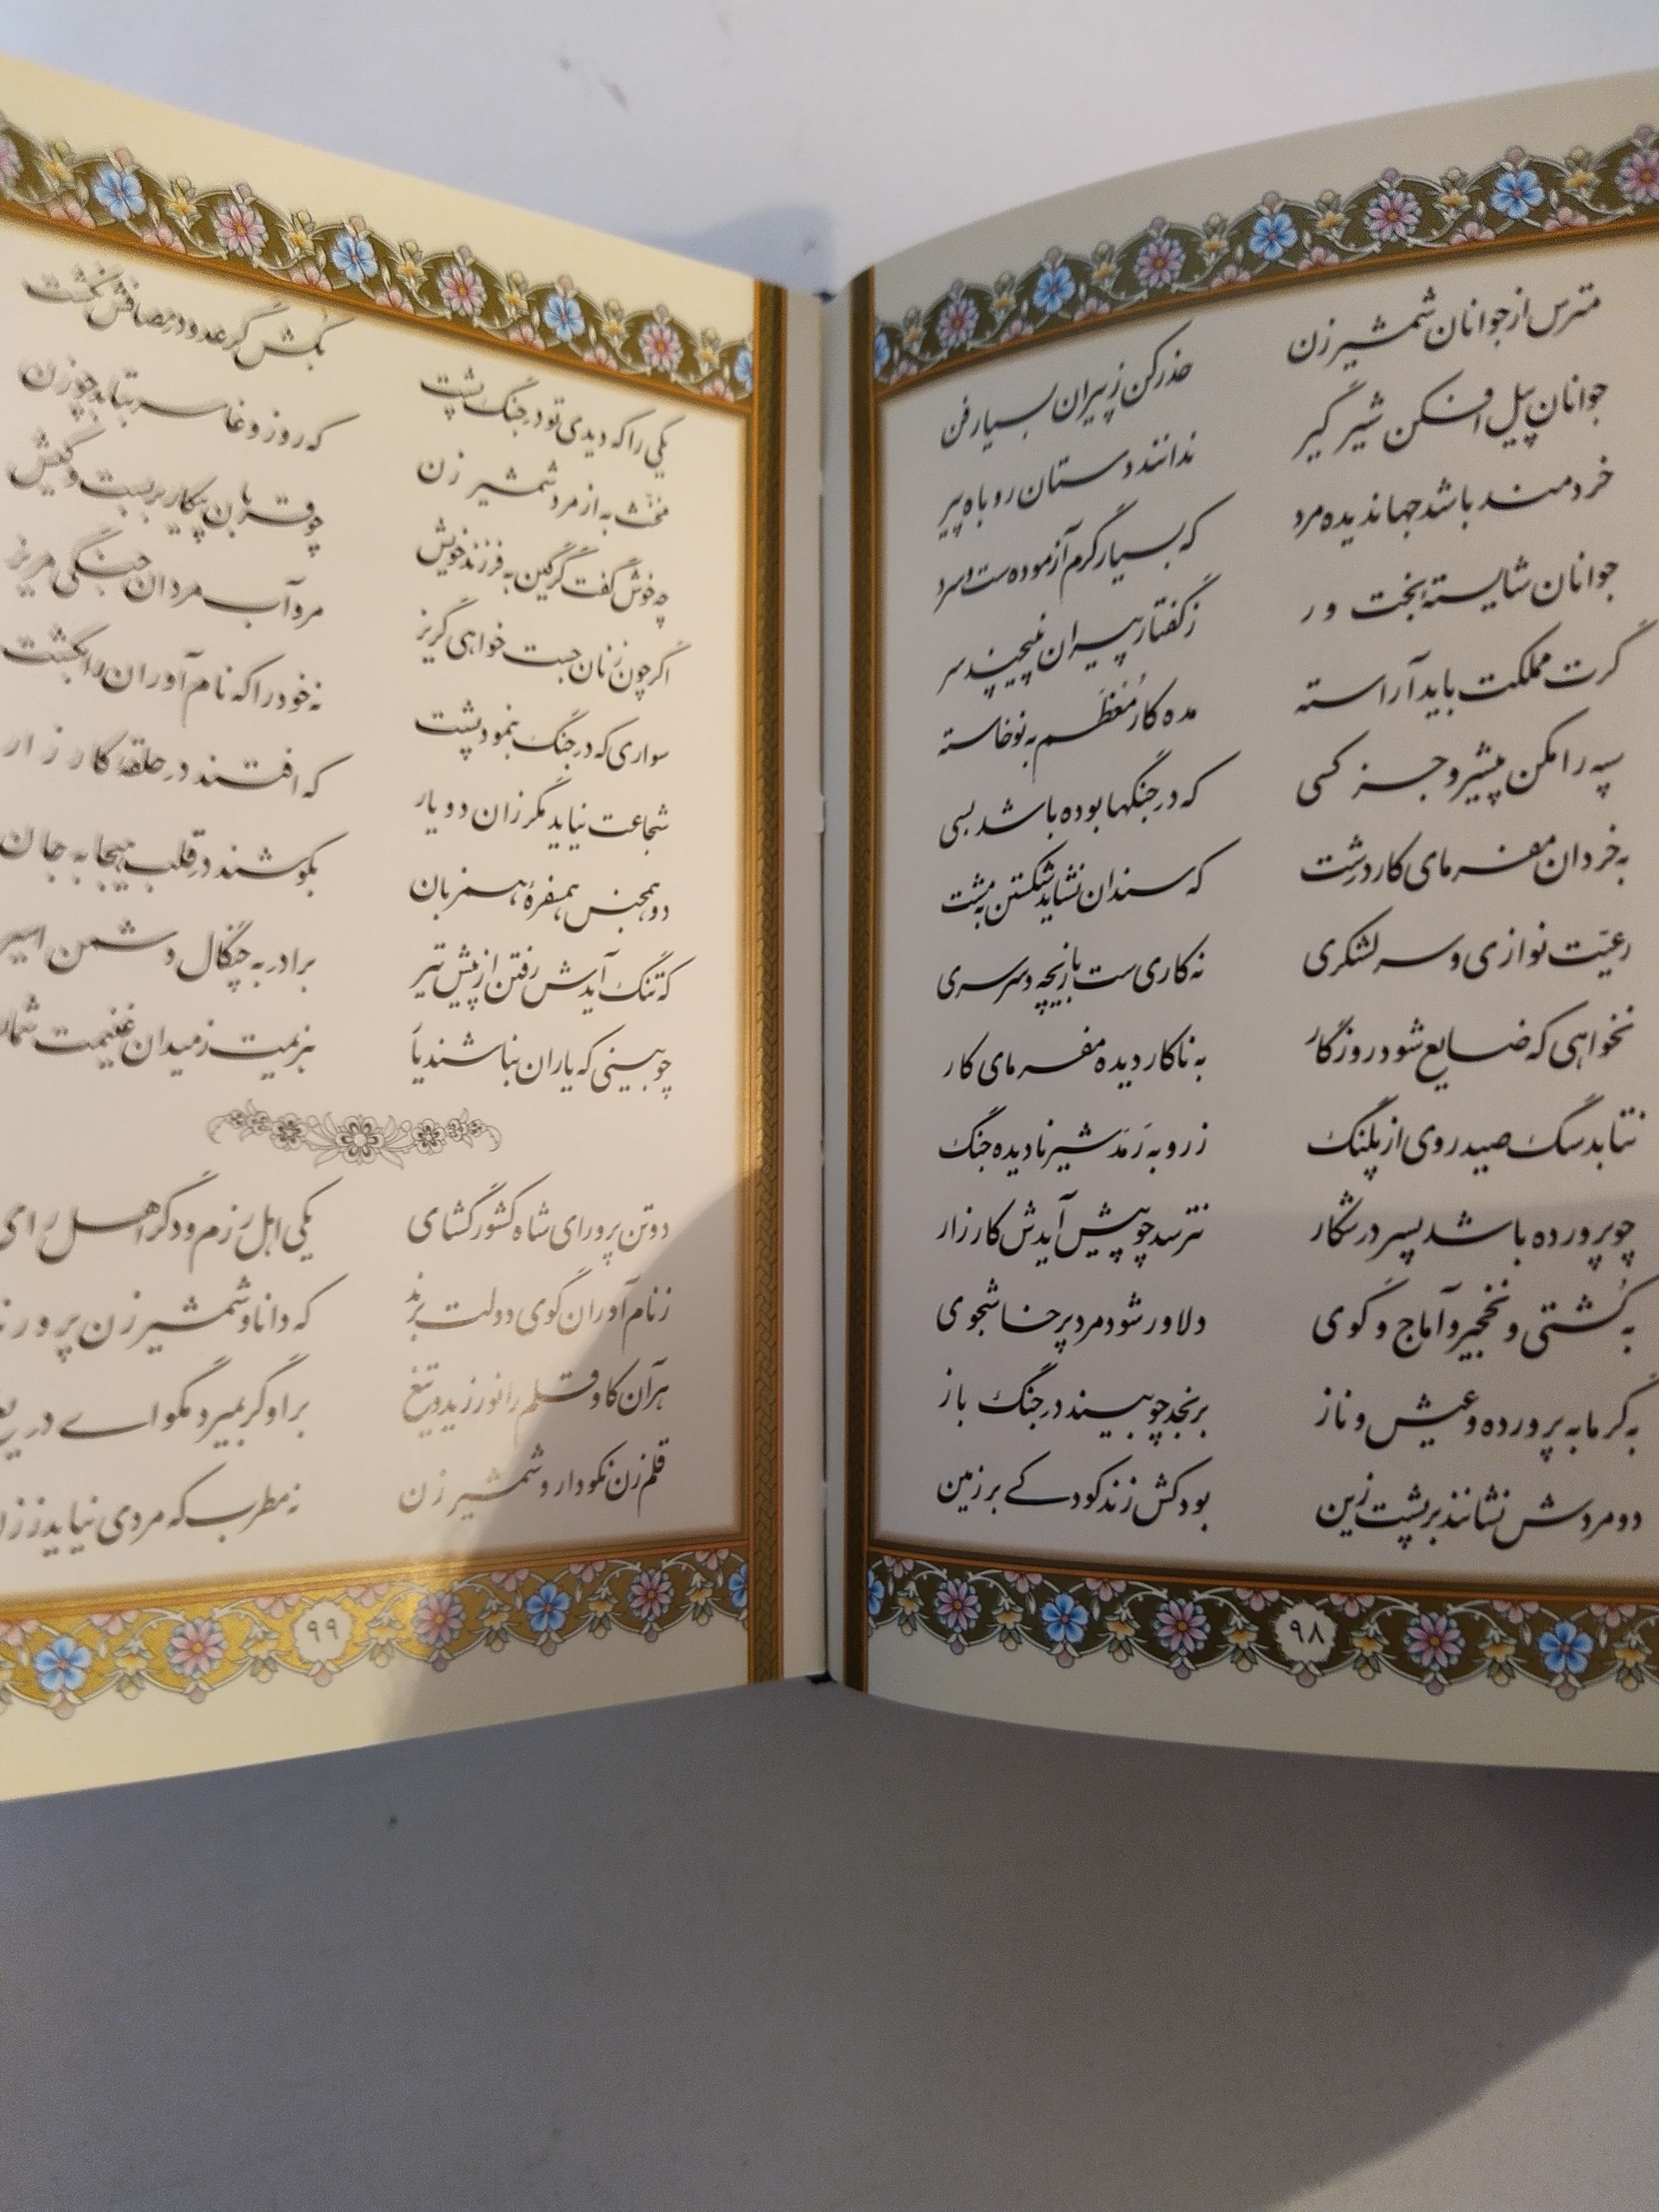 مترس از جوانان شمشیر زن حذر کن ز پیران بسیار فن
جوانان پیل افکن شیر گیر ندانند دستان روباه پیر
خردمند باشد جهاندیده مرد که بسیار گرم آزموده ست و سرد
جوانان شایستهٔ بخت ور ز گفتار پیران نپیچند سر
گرت مملکت باید آراسته مده کار مُعَظَّم به نوخاسته
سپه را مکن پیشرو جز کسی که در جنگها بوده باشد بسی
به خردان مفرمای کار درشت که سندان نشاید شکستن به مشت
رعیّت نوازی و سر لشکری نه کاری ست بازیچه و سرسری
نخواهی که ضایع شود روزگار به ناکار دیده مفرمای کار
نتابد سگ صید روی از پلنگ ز روبه رَمَد شیر نادیده جنگ
چو پرورده باشد پسر در شکار نترسد چو پیش آیدش کارزار
به کُشتی و نخجیر و آماج و گوی دلاور شود مرد پرخاشجوی
به گرمابه پرورده و عیش و ناز برنجد چو بیند در جنگ باز
دو مردش نشانند بر پشت زین بود کش زند کودکے بر زمین
۹۸
یکی را که دیدی تو در جنگ پشت بکُش گر عدو در مصافش نکشت
مخنّث به از مرد شمشیر زن که روز وغا سر بتابد چو زن
چه خوش گفت گرگین به فرزند خویش چو قربان پیکار بربست و کیش
اگر چون زنان جست خواهی گریز مرو آب مردان جنگی مریز
سواری که در جنگ بنمود پشت نه خود را که نام آوران را بکشت
شجاعت نیاید مگر زان دو یار که افتند در حلقهٔ کارزار
دو همجنس همسفرهٔ همزبان بکوشند در قلب هیجا به جان
که تنگ آیدش رفتن از پیش تیر برادر به چنگال دشمن اسیر
چو بینی که یاران نباشند یار هزیمت ز میدان غنیمت شمار
دو تن پرور ای شاه کشور گشای یکی اهل رزم و دگر اهل رای
ز نام آوران گوی دولت برند که دانا و شمشیر زن پرورند
هر آن کاو قلم را نورزید و تیغ بر او گر بمیرد مگو اے دریغ
قلم زن نکو دار و شمشیر زن نه مطرب که مردی نیاید ز زن
۹۹